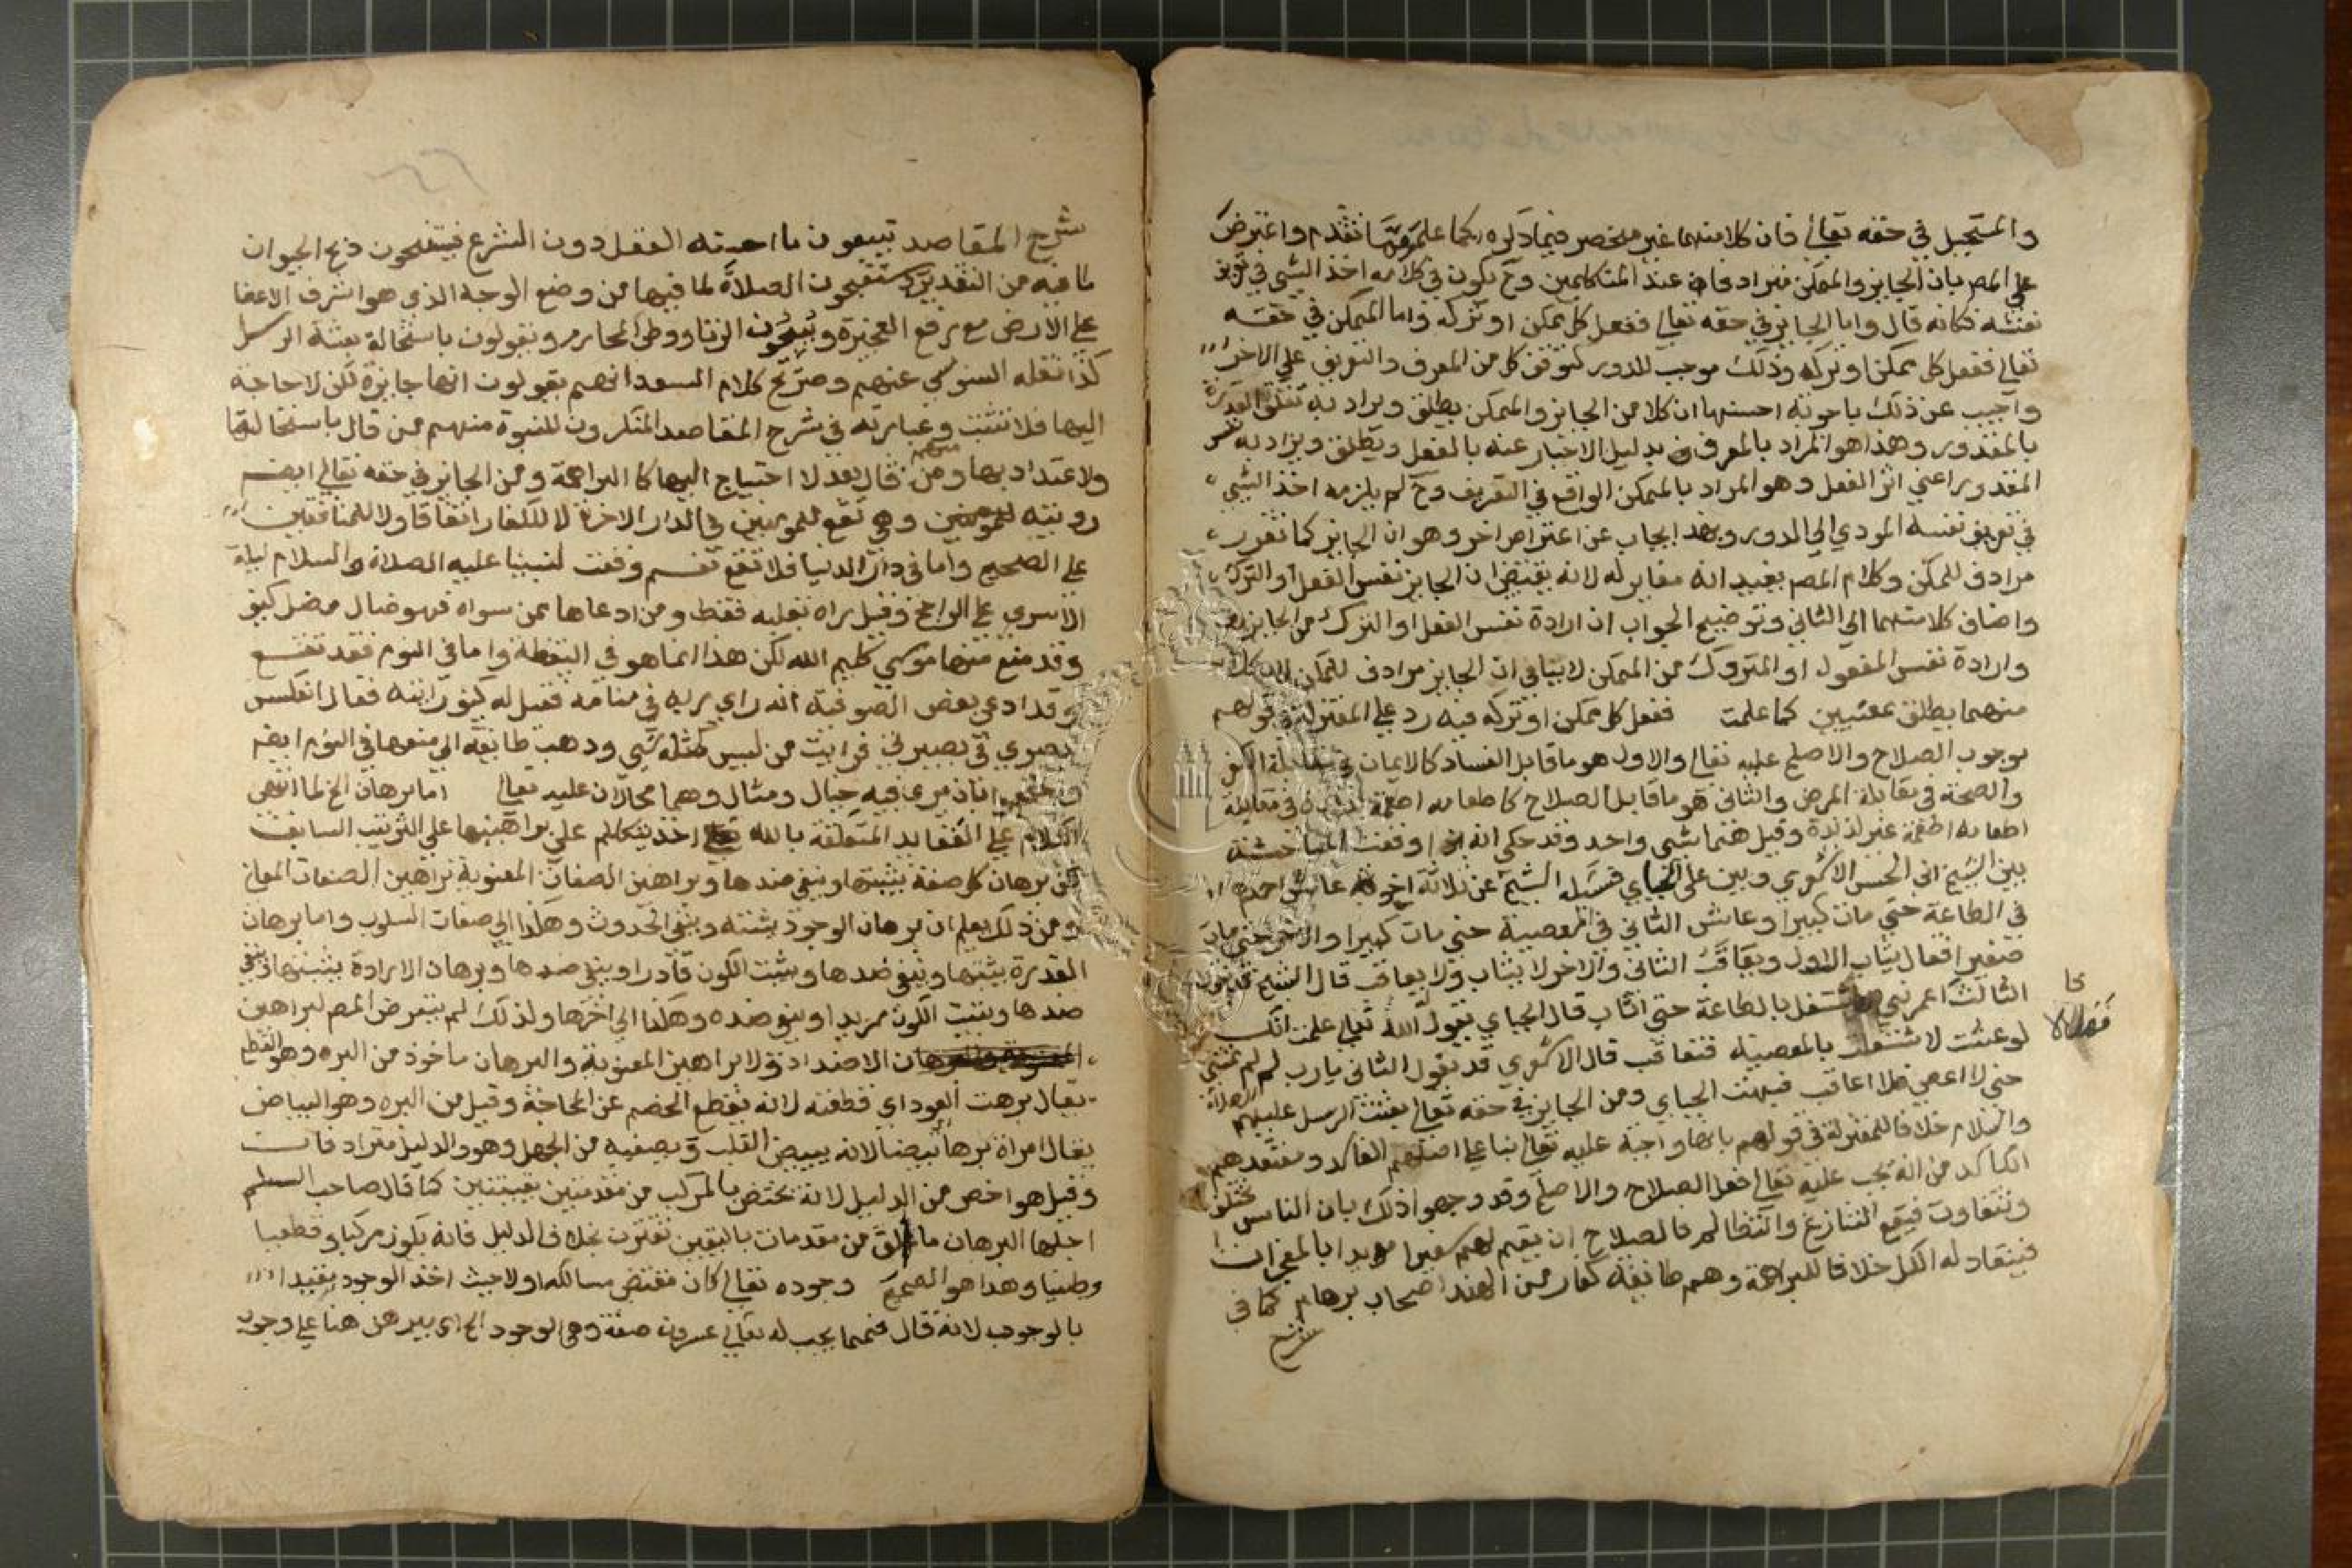 والمستحيل في حقه تعالى فان كلا منهما غير منحصر فيما ذكره كما علم مما تقدم واعترض
على المصـ بان الجايز والممكن مترادفان عند المتكلمين وح يكون في كلامه اخذ الشي في تعريف
نفسه فكانه قال واما الجايز في حقه تعالى ففعل كل ممكن او تركه واما الممكن في حقه
تعالى ففعل كل ممكن او تركه وذلك موجب للدور لتوقف كل من المعرف والتعريف على الاخر
واجيب عن ذلك باجوبة احسنها ان كلا من الجايز والممكن يطلق ويراد به تعلق القدرة
بالمقدور وهذا هو المراد بالمعرف بدليل الاخبار عنه بالفعل ويطلق ويراد به نفس
المقدور اعني اثر الفعل وهو المراد بالممكن الواقع في التعريف وح لم يلزمه اخذ الشي
في تعريف نفسه المودي الى الدور وبهذا يجاب عن اعتراض اخر وهو ان الجايز كما تقرر
مرادف للممكن وكلام المصـ يفيد انه مغاير له لانه يقتضي ان الجايز نفس الفعل او الترك
واضاف كلا منهما الى الثاني وتوضيح الجواب ان ارادة نفس الفعل او الترك من الجايز
وارادة نفس المفعول او المتروك من الممكن لا ينافي ان الجايز مرادف للممكن لان كلا
منهما يطلق بمعنيين كما علمت ففعل كل ممكن او تركه فيه رد على المعتزلة في قولهم
بوجوب الصلاح والاصلح عليه تعالى والاول هو ما قابل الفساد كالايمان في مقابلة الكفر
والصحة في مقابلة المرض والثاني هو ما قابل الصلاح كاطعامه اطعمة لذيذة في مقابلة
اطعامه اطعمة غير لذيذة وقيل هما شي واحد وقد حكي انه وقعت مناقشة
بين الشيخ ابي الحسن الاشعري وبين علي الجباي فسئله الشيخ عن ثلاثة اخوة عاش احدهم
في الطاعة حتى مات كبيرا وعاش الثاني في المعصية حتى مات كبيرا والاخر حتى مات
صغيرا فقال يثاب الاول ويعاقب الثاني والاخر لا يثاب ولا يعاقب قال الشيخ
الثالث اعمرتني فاشتغل بالطاعة حتى اثاب قال الجباي يقول الله تعالى علمت انك
لو عشت لاشتغلت بالمعصية فتعاقب قال الاشعري قد يقول الثاني يارب لم لم تمتني
حتى لا اعصي فلا اعاقب فبهت الجباي ومن الجايز في حقه تعالى بعثة الرسل عليهم الصلاة
والسلام خلافا للمعتزلة في قولهم بانها واجبة عليه تعالى بنا على اصلهم الفاسد ومعتقدهم
الكاسد من انه يجب عليه تعالى فعل الصلاح والاصلح وقد وجهوا ذلك بان الناس تختلف
وتتفاوت فيقع التنازع والتظالم فالصلاح ان يقيم لهم سفيرا مويدا بالمعجزات
فينقاد له الكل خلافا للبراهمة وهم طائفة كفار من الهند اصحاب برهام كما في
شرح
شرح المقاصد يتبعون ما احسنه العقل دون الشرع فيستقبحون ذبح الحيوان
لما فيه من التعذيب ويستقبحون الصلاة لما فيها من وضع الوجه الذي هو اشرف الاعضا
على الارض مع رفع العجيزة ويبيحون الزنا ووطى المحارم ويقولون باستحالة بعثة الرسل
كذا نقله السنوسي عنهم وصريح كلام السعد انهم يقولون انها جايزة لكن لا حاجة
اليها فلا تثبت وعبارته في شرح المقاصد المنكرون للنبوة منهم من قال باستحالتها
ولا عتداد بها ومن منهم قال بعد لا احتياج اليها كالبراهمة ومن الجايز في حقه تعالى ايضـ
رويته للمومنين وهي تقع للمومنين في الدار الاخرة لا للكفار اتفاقا ولا للمنافقين
على الصحيح واما في دار الدنيا فلا تقع نعم وقعت لنبينا عليه الصلاة والسلام ليلة
الاسرى على الراجح وقيل راه بقلبه فقط ومن ادعاها ممن سواه فهو ضال مضل كيف
وقد منع منها موسى كليم الله لكن هذا انما هو في اليقظة واما في النوم فقد تقع
وقد ادعى بعض الصوفية انه راي ربه في منامه فقيل له كيف رايته فقال انعكس
بصري في بصيرتي فرايت من ليس كمثله شي وذهب طايفة الى منعها في النوم ايضـ
بان مرى فيه خيال ومثال وهما محالان عليه تعالى اما برهان الخ لما انهى
الكلام على العقايد المتعلقة بالله اخذ يتكلم على براهينها على الترتيب السابق
لكن برهان كل صفة يثبتها وينفي ضدها وبراهين الصفات المعنوية براهين الصفات المعاني
ومن ذلك يعلم ان برهان الوجود يثبته وينفي الحدوث وهكذا الى صفات السلوب واما برهان
القدرة يثبتها وينفي ضدها ويثبت الكون قادرا وينفي ضدها وبرهان الارادة يثبتها وينفي
ضدها ويثبت الكون مريدا وينفي ضده وهكذا الى اخرها ولذلك لم يتعرض المصـ لبراهين
الاضداد ولا براهين المعنوية والبرهان ماخوذ من البره وهو القطع
يقال برهت العود اي قطعته لانه يقطع الخصم عن المحاجة وقيل من البره وهو البياض
يقال امراة برها بيضا لانه يبيض القلب ويصفيه من الجهل وهو والدليل مترادفان
وقيل هو اخص من الدليل لانه يختص بالمركب من مقدمتين يقينيتين كما قال صاحب السلم
اجلها البرهان ما الف من مقدمات باليقين تقترن بخلاف الدليل فانه يكون مركبا وقطعيا
وظنيا وهذا هو الصحيح وجوده تعالى كان مقتضى مسالكه اولا حيث اخذ الوجود مقيدا
بالوجوب لانه قال فمما يجب له تعالى عشرون صفة وهي الوجود الخ اي يبرهن هنا على وجوب